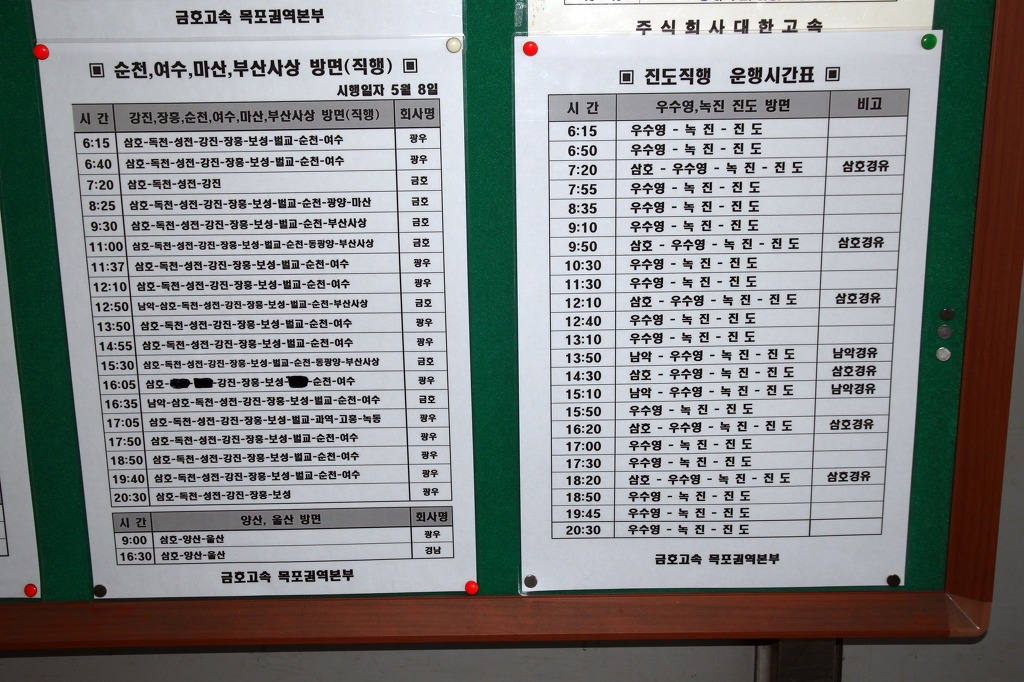 금호고속 목포권역본부
주 식 회 사 대 한 고 속
▣ 순천,여수,마산,부산사상 방면(직행) ▣
시행일자 5월 8일
시 간 강진,장흥,순천,여수,마산,부산사상 방면(직행) 회사명
6:15 삼호-독천-성전-강진-장흥-보성-벌교-순천-여수 광우
6:40 삼호-독천-성전-강진-장흥-보성-벌교-순천-여수 광우
7:20 삼호-독천-성전-강진 금호
8:25 삼호-독천-성전-강진-장흥-보성-벌교-순천-광양-마산 금호
9:30 삼호-독천-성전-강진-장흥-보성-벌교-순천-부산사상 금호
11:00 삼호-독천-성전-강진-장흥-보성-벌교-순천-동광양-부산사상 금호
11:37 삼호-독천-성전-강진-장흥-보성-벌교-순천-여수 광우
12:10 삼호-독천-성전-강진-장흥-보성-벌교-순천-여수 광우
12:50 남악-삼호-독천-성전-강진-장흥-보성-벌교-순천-부산사상 금호
13:50 삼호-독천-성전-강진-장흥-보성-벌교-순천-여수 광우
14:55 삼호-독천-성전-강진-장흥-보성-벌교-순천-여수 광우
15:30 삼호-독천-성전-강진-장흥-보성-벌교-순천-동광양-부산사상 금호
16:05 삼호- - -강진-장흥-보성- -순천-여수 광우
16:35 남악-삼호-독천-성전-강진-장흥-보성-벌교-순천-여수 금호
17:05 삼호-독천-성전-강진-장흥-보성-벌교-과역-고흥-녹동 광우
17:50 삼호-독천-성전-강진-장흥-보성-벌교-순천-여수 광우
18:50 삼호-독천-성전-강진-장흥-보성-벌교-순천-여수 광우
19:40 삼호-독천-성전-강진-장흥-보성-벌교-순천-여수 광우
20:30 삼호-독천-성전-강진-장흥-보성 광우
시 간 양산, 울산 방면 회사명
9:00 삼호-양산-울산 광우
16:30 삼호-양산-울산 경남
금호고속 목포권역본부
▣ 진도직행 운행시간표 ▣
시 간 우수영,녹진 진도 방면 비고
6:15 우수영 - 녹 진 - 진 도
6:50 우수영 - 녹 진 - 진 도
7:20 삼호 - 우수영 - 녹 진 - 진 도 삼호경유
7:55 우수영 - 녹 진 - 진 도
8:35 우수영 - 녹 진 - 진 도
9:10 우수영 - 녹 진 - 진 도
9:50 삼호 - 우수영 - 녹 진 - 진 도 삼호경유
10:30 우수영 - 녹 진 - 진 도
11:30 우수영 - 녹 진 - 진 도
12:10 삼호 - 우수영 - 녹 진 - 진 도 삼호경유
12:40 우수영 - 녹 진 - 진 도
13:10 우수영 - 녹 진 - 진 도
13:50 남악 - 우수영 - 녹 진 - 진 도 남악경유
14:30 삼호 - 우수영 - 녹 진 - 진 도 삼호경유
15:10 남악 - 우수영 - 녹 진 - 진 도 남악경유
15:50 우수영 - 녹 진 - 진 도
16:20 삼호 - 우수영 - 녹 진 - 진 도 삼호경유
17:00 우수영 - 녹 진 - 진 도
17:30 우수영 - 녹 진 - 진 도
18:20 삼호 - 우수영 - 녹 진 - 진 도 삼호경유
18:50 우수영 - 녹 진 - 진 도
19:45 우수영 - 녹 진 - 진 도
20:30 우수영 - 녹 진 - 진 도
금호고속 목포권역본부